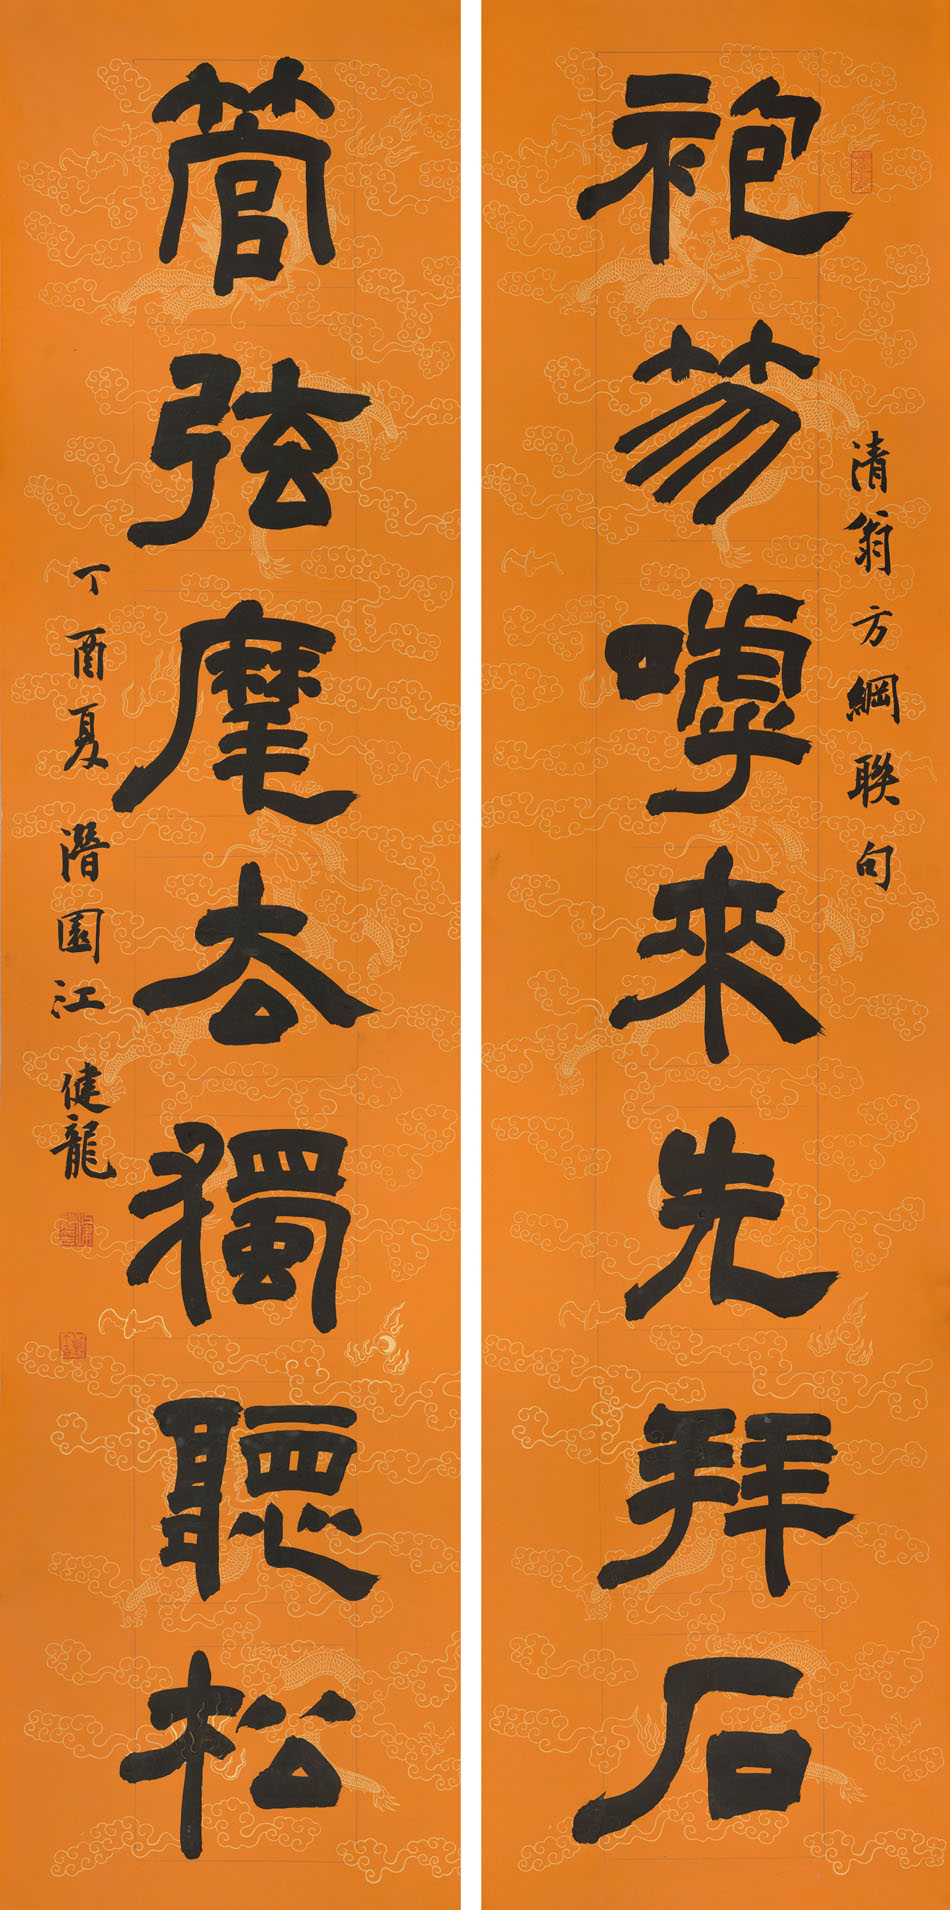 清翁方綱聯句
袍笏嘑來先拜石
管弦麾去獨聽松
丁酉夏潛園江健龍